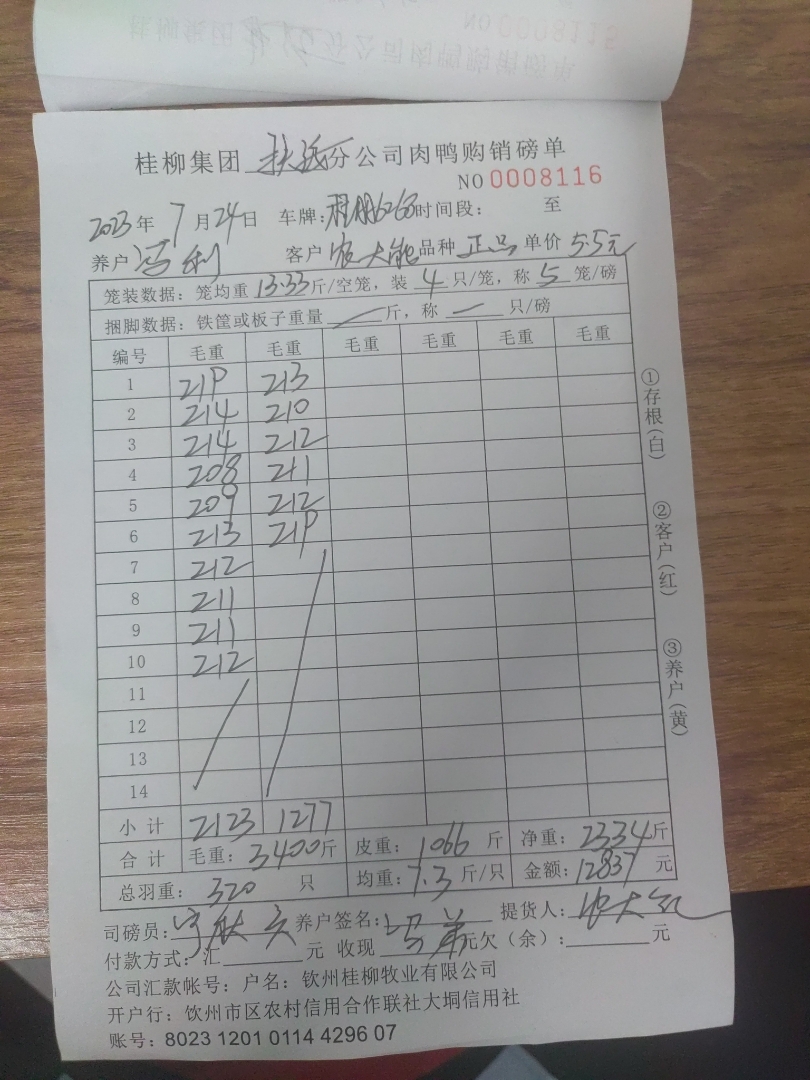 桂柳集团 扶绥分公司肉鸭购销磅单
NO 0008116
2023年 7月24日 车牌: 6263 时间段: 至
养户 冯利 客户 农大能 品种 正品 单价 5.5元
笼装数据: 笼均重 13.33斤/空笼, 装 4 只/笼, 称 5 笼/磅
捆脚数据: 铁筐或板子重量 一 斤, 称 一 只/磅
编号 毛重 毛重 毛重 毛重 毛重 毛重
1 219 213
2 214 210
3 214 212
4 208 211
5 209 212
6 213 219
7 212
8 211
9 211
10 212
11
12
13
14
小计 2123 1277
合计 毛重: 3400斤 皮重: 1066 斤 净重: 2334斤
总羽重: 320 只 均重: 7.3斤/只 金额: 12837 元
司磅员: 养户签名: 冯 提货人: 农大
付款方式: 汇 元 收现 元欠(余): 元
公司汇款帐号: 户名: 钦州桂柳牧业有限公司
开户行: 钦州市区农村信用合作联社大垌信用社
账号: 8023 1201 0114 4296 07
①存根(白)
②客户(红)
③养户(黄)